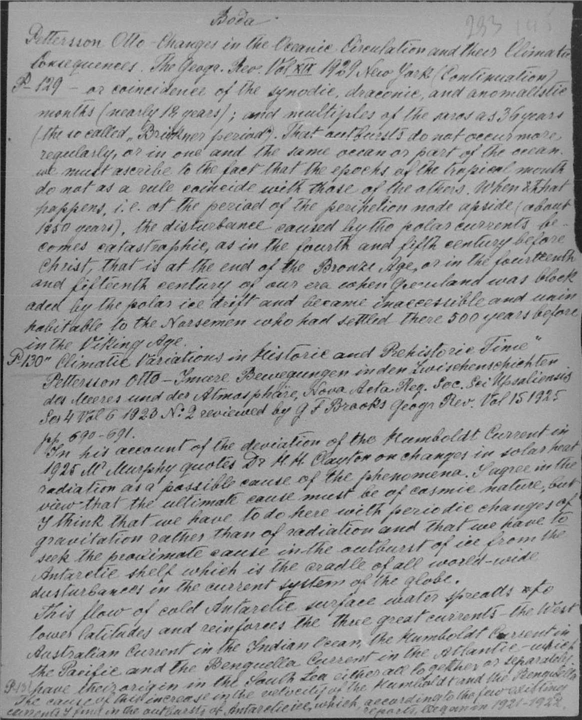 Boda
233 14
Pettersson Otto - Changes in the Oceanic Circulation and their Climatic
Consequences. The Geogr. Rev. Vol XIX 1929 New York (Continuation)
P-129 - or coincidence of the synodic, draconic, and anomalistic
months (nearly 18 years); and multiples of the saros as 36 years
(the so called, Brückner period). That outbursts do not occur more
regularly, or in one and the same ocean or part of the ocean
we must ascribe to the fact that the epochs of the tropical month
do not as a rule coincide with those of the others. When that
happens, i.e. at the period of the perihelion node apside (about
1850 years), the disturbance caused by the polar currents be-
comes catastrophic, as in the fourth and fifth century before
Christ, that is at the end of the Bronze Age, or in the fourteenth
and fifteenth century of our era when Greenland was block
aded by the polar ice drift and became inaccessible and unin
habitable to the Norsemen who had settled there 500 years before
in the Viking Age.
P.130 "Climatic Variations in Historic and Prehistoric Time"
Pettersson Otto - Innere Bewegungen in den Zwischenschichten
des Meeres und der Atmosphäre, Nova Acta Reg. Soc. Sci Upsaliensis
Ser 4 Vol 6 1923 No 2 reviewed by G F Brooks Geogr Rev. Vol 15 1925
pp. 690-691.
In his account of the deviation of the Humboldt Current in
1925 Mr Murphy quotes Dr H. H. Clayton on changes in solar heat
radiation as a possible cause of the phenomena. I agree in the
view that the ultimate cause must be of cosmic nature, but
I think that we have to do here with periodic changes of
gravitation rather than of radiation and that we have to
seek the proximate cause in the outburst of ice from the
Antarctic shelf which is the cradle of all world-wide
disturbances in the current system of the globe.
This flow of cold Antarctic surface water spreads to
lower latitudes and reinforces the three great currents - the West
Australian Current in the Indian Ocean, the Humboldt Current in
the Pacific and the Benguella Current in the Atlantic - which
have their origin in the South Sea either all together or separately.
P-131 The cause of this increase in the velocity of the Humboldt and the Benguella
currents I find in the outbursts of Antarctic ice, which, according to the few existing
reports, began in 1921-1922.